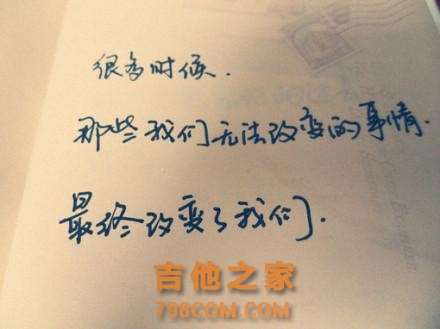 很多时候.
那些我们无法改变的事情.
最终改变了我们.
吉他之家
798COM.COM